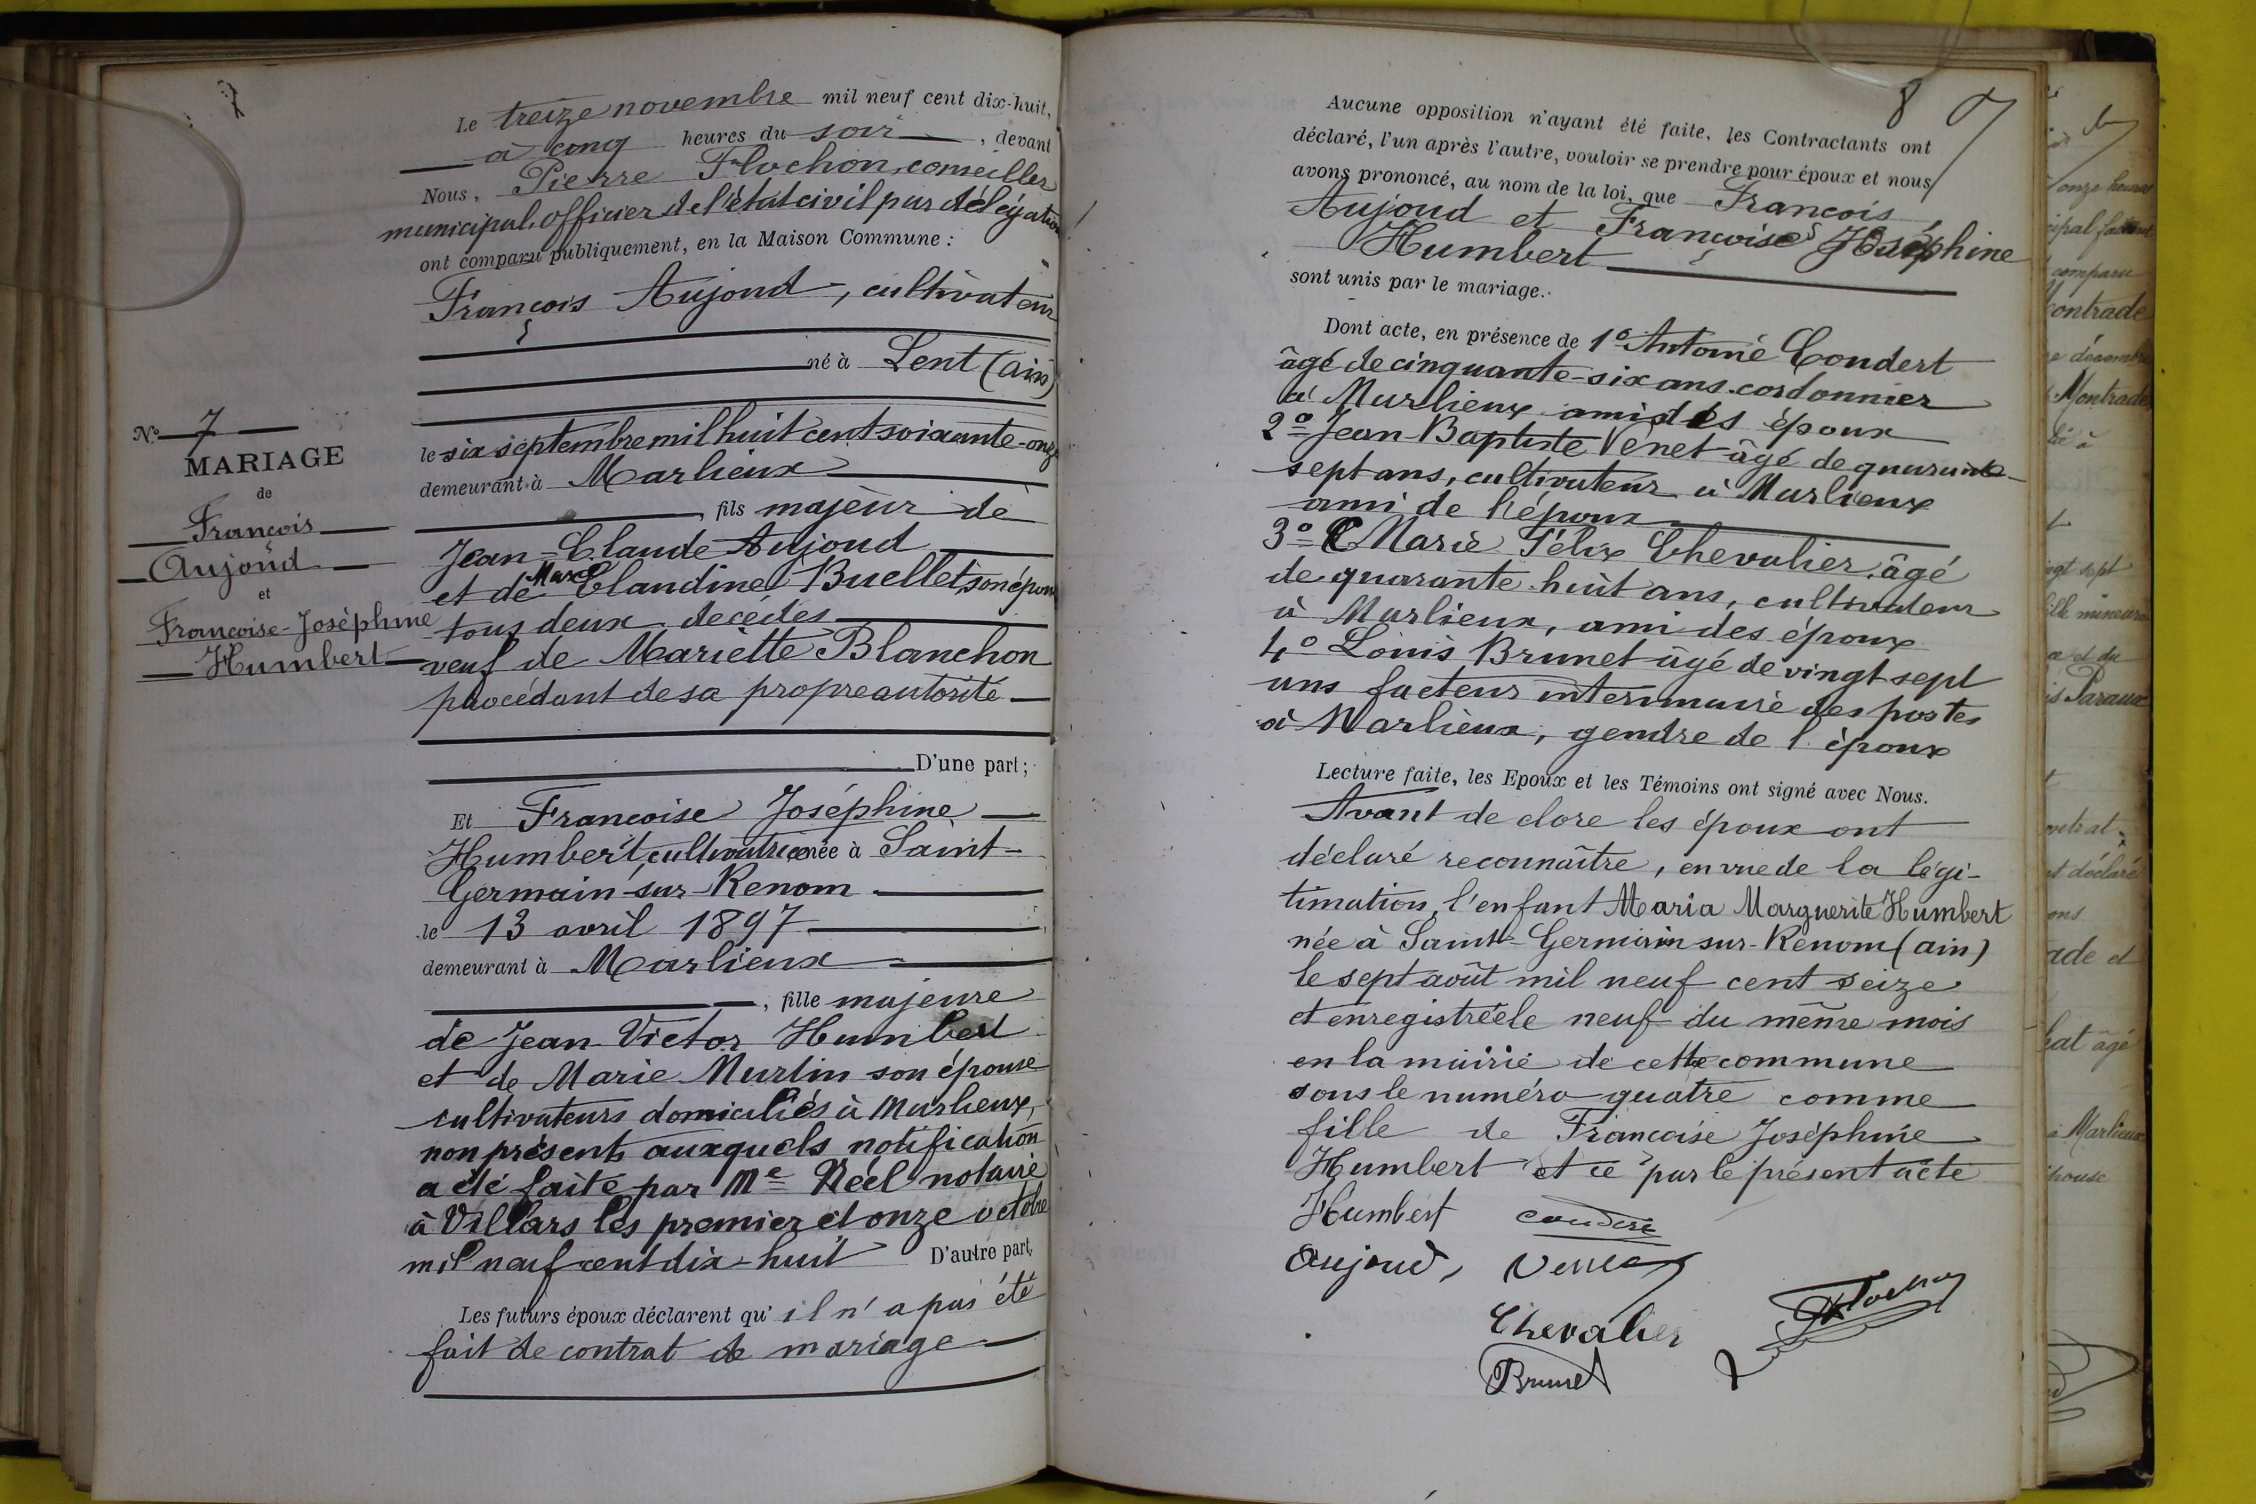 7
Le treize novembre mil neuf cent dix-huit,
à cinq heures du soir, devant
Nous, Pierre Flochon, conseiller
municipal, officier de l'état civil par délégation
ont comparu publiquement, en la Maison Commune :
François Aujoud, cultivateur
né à Lent (ain)
le six septembre mil huit cent soixante-onze
demeurant à Marlieux
fils majeur de
Jean-Claude Aujoud
et de Marie Claudine Buellet, son épouse
tous deux décédés
veuf de Mariette Blanchon
procédant de sa propre autorité
D'une part ;
N° 7
MARIAGE
de
François
Aujoud
et
Françoise-Joséphine
Humbert
Et Françoise Joséphine
Humbert, cultivatrice née à Saint-
Germain-sur-Renom
le 13 avril 1897
demeurant à Marlieux
, fille majeure
de Jean-Victor Humbert
et de Marie Murlin son épouse
cultivateurs domiciliés à Marlieux,
non présents auxquels notification
a été faite par Me Réel notaire
à Villars les premier et onze octobre
mil neuf cent dix-huit D'autre part,
Les futurs époux déclarent qu'il n'a pas été
fait de contrat de mariage
8
Aucune opposition n'ayant été faite, les Contractants ont
déclaré, l'un après l'autre, vouloir se prendre pour époux et nous
avons prononcé, au nom de la loi, que François
Aujoud et Françoise Joséphine
Humbert
sont unis par le mariage.
Dont acte, en présence de 1° Antoine Coudert
âgé de cinquante-six ans cordonnier
à Marlieux ami des époux
2° Jean-Baptiste Venet âgé de quarante-
sept ans, cultivateur à Marlieux
ami de l'époux
3° Marie Félix Chevalier, âgé
de quarante-huit ans, cultivateur
à Marlieux, ami des époux
4° Louis Brunet âgé de vingt sept
ans facteur intérimaire des postes
à Marlieux, gendre de l'époux
Lecture faite, les Epoux et les Témoins ont signé avec Nous.
Avant de clore les époux ont
déclaré reconnaître, en vue de la légi-
timation, l'enfant Maria Marguerite Humbert
née à Saint-Germain sur-Renom (ain)
le sept août mil neuf cent seize
et enregistrée le neuf du même mois
en la mairie de cette commune
sous le numéro quatre comme
fille de Françoise Joséphine
Humbert et ce par le présent acte
Humbert Coudert
Aujoud, Venet
Chevalier Flochon
Brunet
onze heures
comparu
Montrade
décembre
Montrade
né à
vingt sept
fille mineure
et du
Paraux
contrat
ont déclaré
ade et
âgé
à Marlieux
épouse